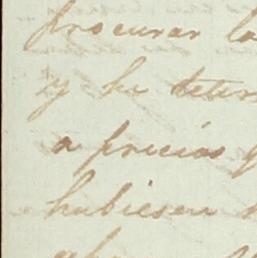 procurar la
y su deter
a precios q
hubiesen